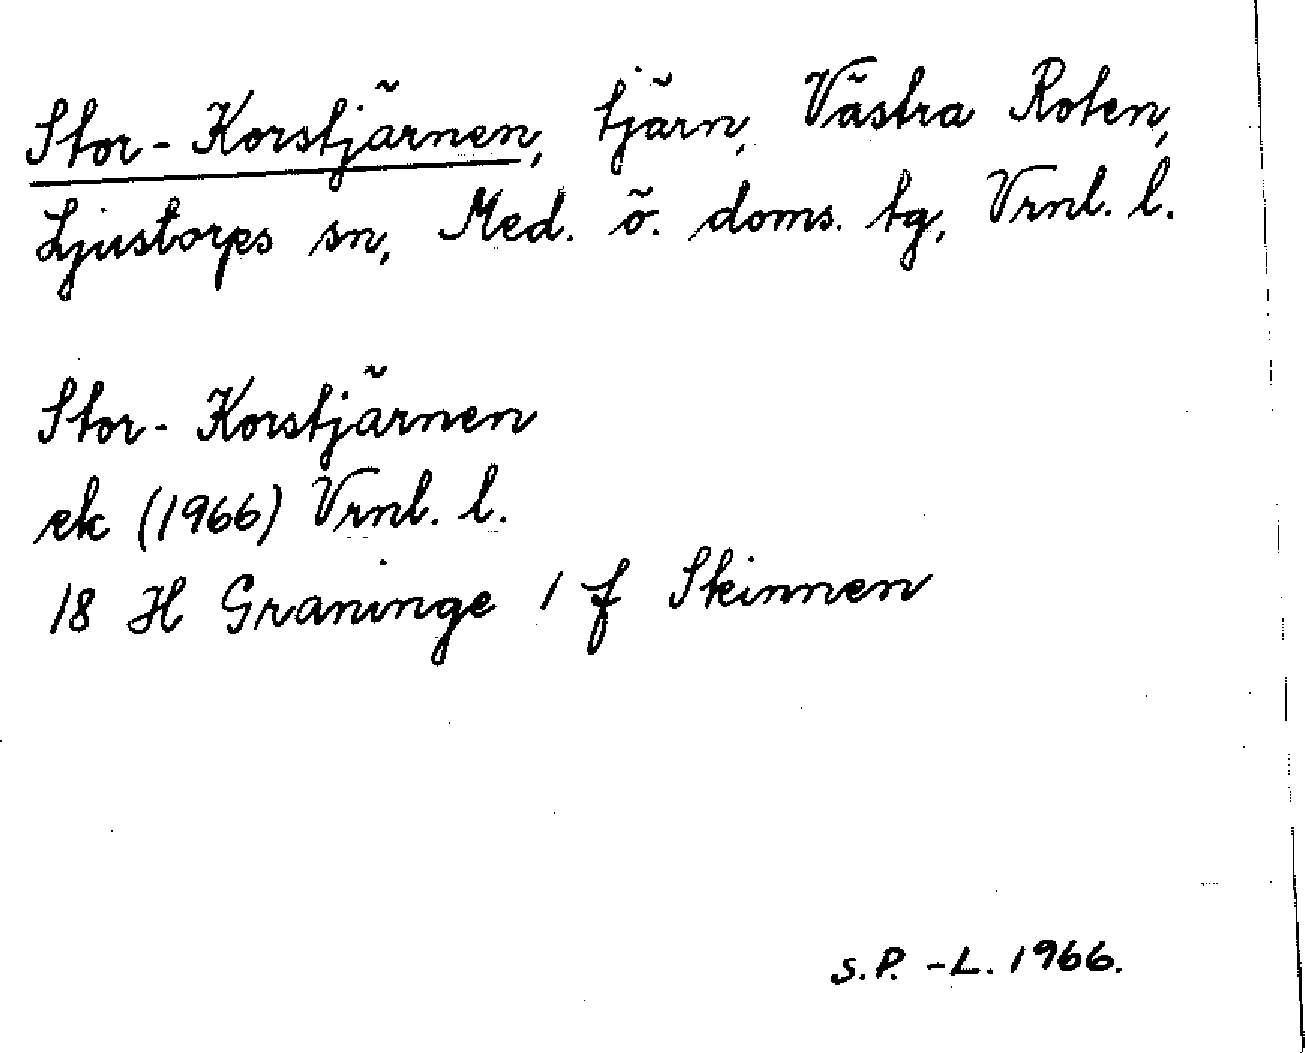 Stor-Korstjärnen, tjärn, Västra Roten,
Ljustorps sn, Med. ö. doms. tg, Vrnl. l.
Stor-Korstjärnen
ek (1966) Vrnl. l.
18 H Graninge 1 f Skinnen
S.P.-L. 1966.